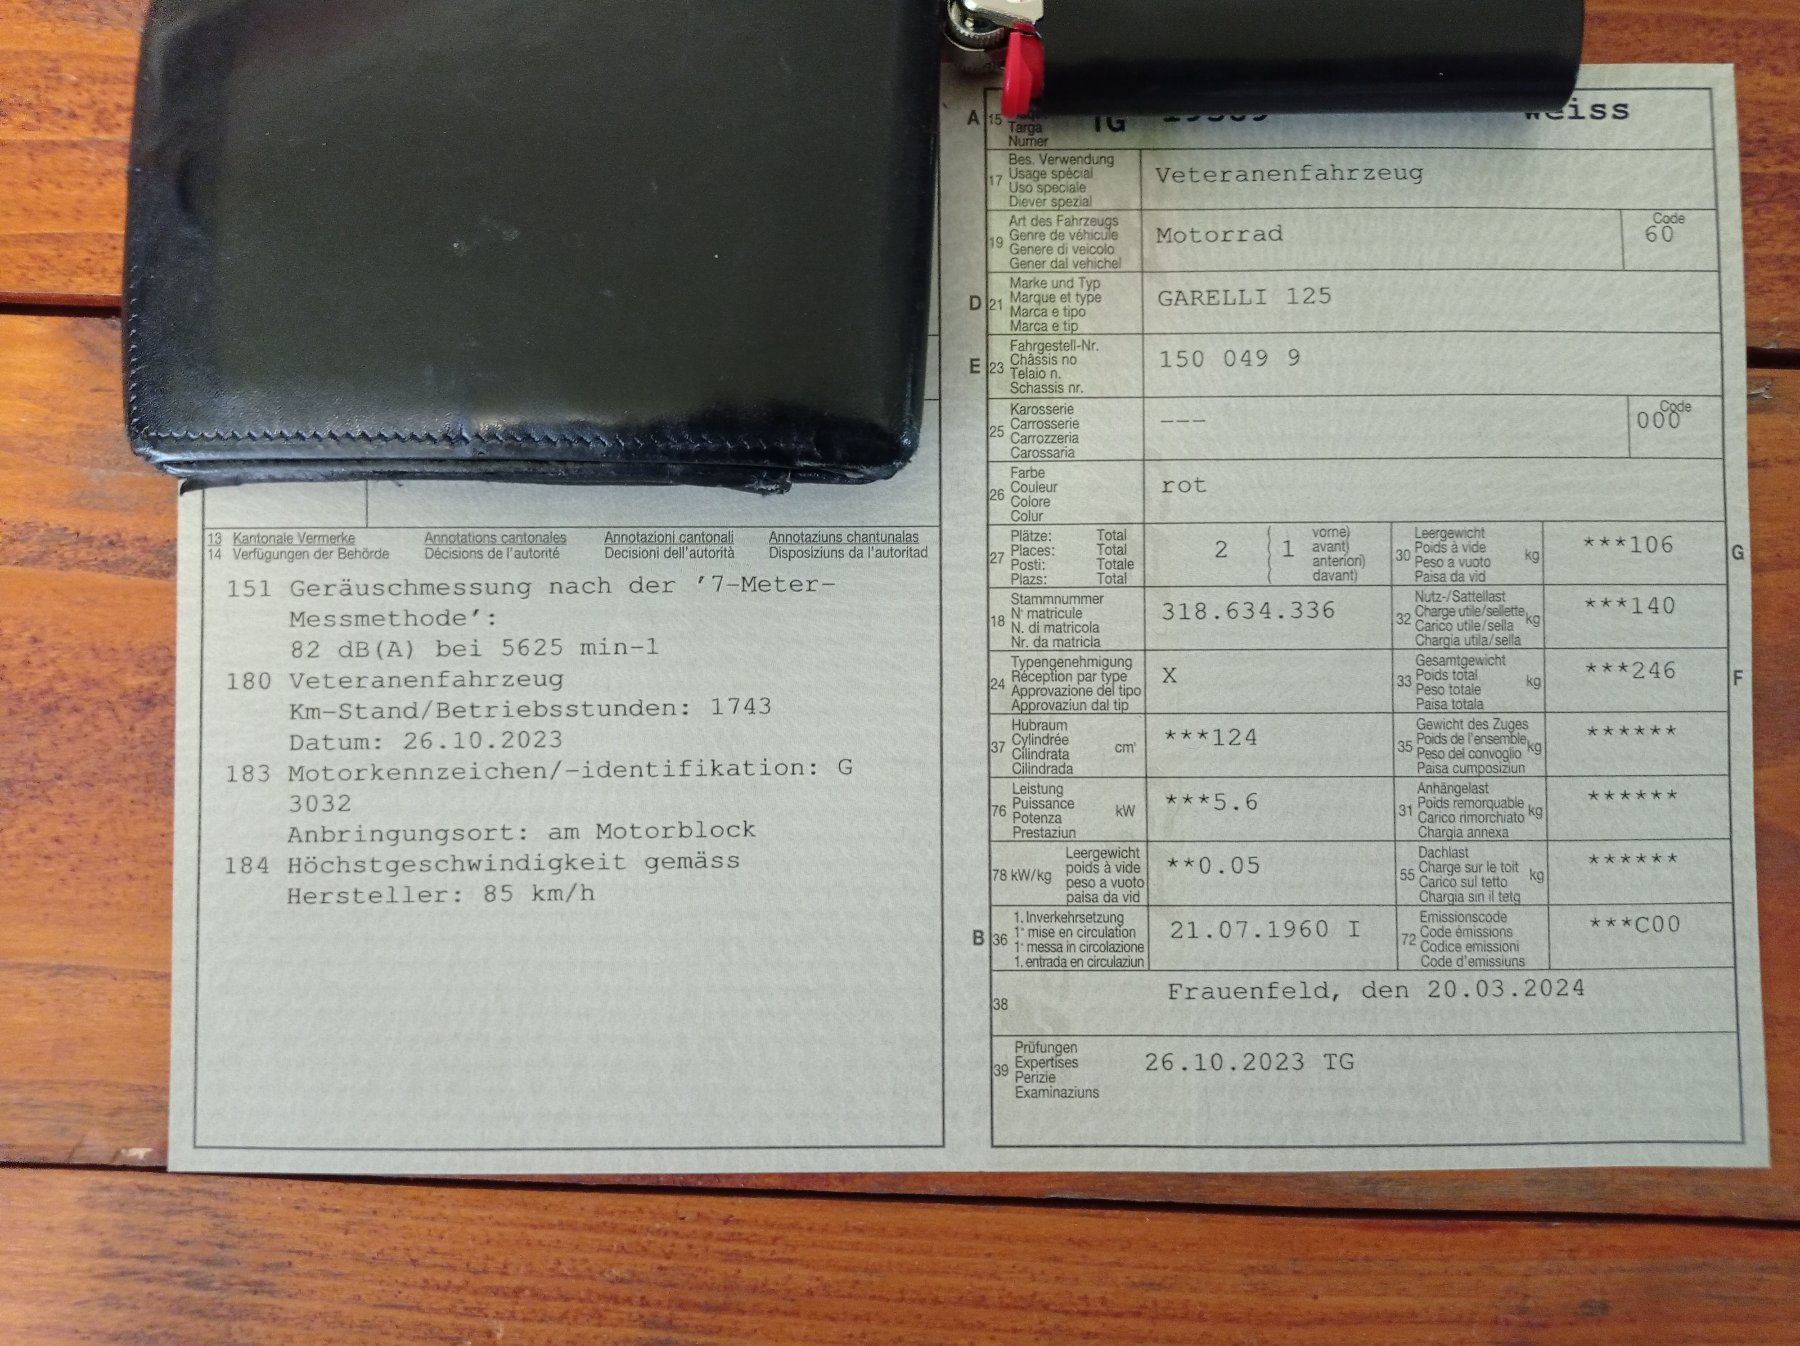 13 Kantonale Vermerke Annotations cantonales Annotazioni cantonali Annotaziuns chantunalas
14 Verfügungen der Behörde Décisions de l'autorité Decisioni dell'autorità Disposiziuns da l'autoritad
151 Geräuschmessung nach der '7-Meter-
Messmethode':
82 dB(A) bei 5625 min-1
180 Veteranenfahrzeug
Km-Stand/Betriebsstunden: 1743
Datum: 26.10.2023
183 Motorkennzeichen/-identifikation: G
3032
Anbringungsort: am Motorblock
184 Höchstgeschwindigkeit gemäss
Hersteller: 85 km/h
A 15 TG Weiss
Targa
Numer
Bes. Verwendung
17 Usage spécial Veteranenfahrzeug
Uso speciale
Diever spezial
Art des Fahrzeugs Code
19 Genre de véhicule Motorrad 60
Genere di veicolo
Gener dal vehichel
Marke und Typ
D 21 Marque et type GARELLI 125
Marca e tipo
Marca e tip
Fahrgestell-Nr.
E 23 Châssis no 150 049 9
Telaio n.
Schassis nr.
Karosserie Code
25 Carrosserie --- 000
Carrozzeria
Carossaria
Farbe
26 Couleur rot
Colore
Colur
Plätze: Total vorne) Leergewicht
27 Places: Total 2 ( 1 avant) 30 Poids à vide kg ***106 G
Posti: Totale anteriori) Peso a vuoto
Plazs: Total davant) Paisa da vid
Stammnummer Nutz-/Sattellast
18 N° matricule 318.634.336 32 Charge utile/sellette kg ***140
N. di matricola Carico utile/sella
Nr. da matricla Chargia utila/sella
Typengenehmigung Gesamtgewicht
24 Réception par type X 33 Poids total kg ***246 F
Approvazione del tipo Peso totale
Approvaziun dal tip Paisa totala
Hubraum Gewicht des Zuges
37 Cylindrée cm³ ***124 35 Poids de l'ensemble kg ******
Cilindrata Peso del convoglio
Cilindrada Paisa cumposiziun
Leistung Anhängelast
76 Puissance kW ***5.6 31 Poids remorquable kg ******
Potenza Carico rimorchiato
Prestaziun Chargia annexa
Leergewicht Dachlast
78 kW/kg poids à vide **0.05 55 Charge sur le toit kg ******
peso a vuoto Carico sul tetto
paisa da vid Chargia sin il tetg
1. Inverkehrsetzung Emissionscode
B 36 1ᵉ mise en circulation 21.07.1960 I 72 Code émissions ***C00
1ᵃ messa in circolazione Codice emissioni
1. entrada en circulaziun Code d'emissiuns
38 Frauenfeld, den 20.03.2024
Prüfungen
39 Expertises 26.10.2023 TG
Perizie
Examinaziuns